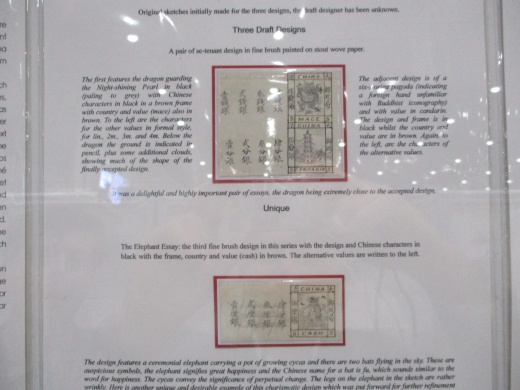 Original sketches initially made for the three designs, the draft designer has been unknown.
Three Draft Designs
A pair of se-tenant design in fine brush painted on stout wove paper.
The first features the dragon guarding
the Night-shining Pearl in black
(paling to grey) with Chinese
characters in black in a brown frame
with country and value (mace) also in
brown. To the left are the characters
for the other values in formal style,
for 1m., 2m., 3m. and 4m. Below the
dragon the ground is indicated in
pencil, plus some additional clouds,
showing much of the shape of the
finally accepted design.
CHINA
MACE
CHINA
The adjacent design is of a
six-storied pagoda (indicating
a foreign hand unfamiliar
with Buddhist iconography)
and with value in candarin.
The design and frame is in
black whilst the country and
value are in brown. Again, to
the left, are the characters of
the alternative values.
It was a delightful and highly important pair of essays, the dragon being extremely close to the accepted design.
Unique
The Elephant Essay: the third fine brush design in this series with the design and Chinese characters in
black with the frame, country and value (cash) in brown. The alternative values are written to the left.
CHINA
CASH
The design features a ceremonial elephant carrying a pot of growing cycas and there are two bats flying in the sky. These are
auspicious symbols, the elephant signifies great happiness and the Chinese name for a bat is fu, which sounds similar to the
word for happiness. The cycas convey the significance of perpetual change. The legs on the elephant in the sketch are rather
wrinkly. Here is another unique and desirable example of this charismatic design which was put forward for further refinement